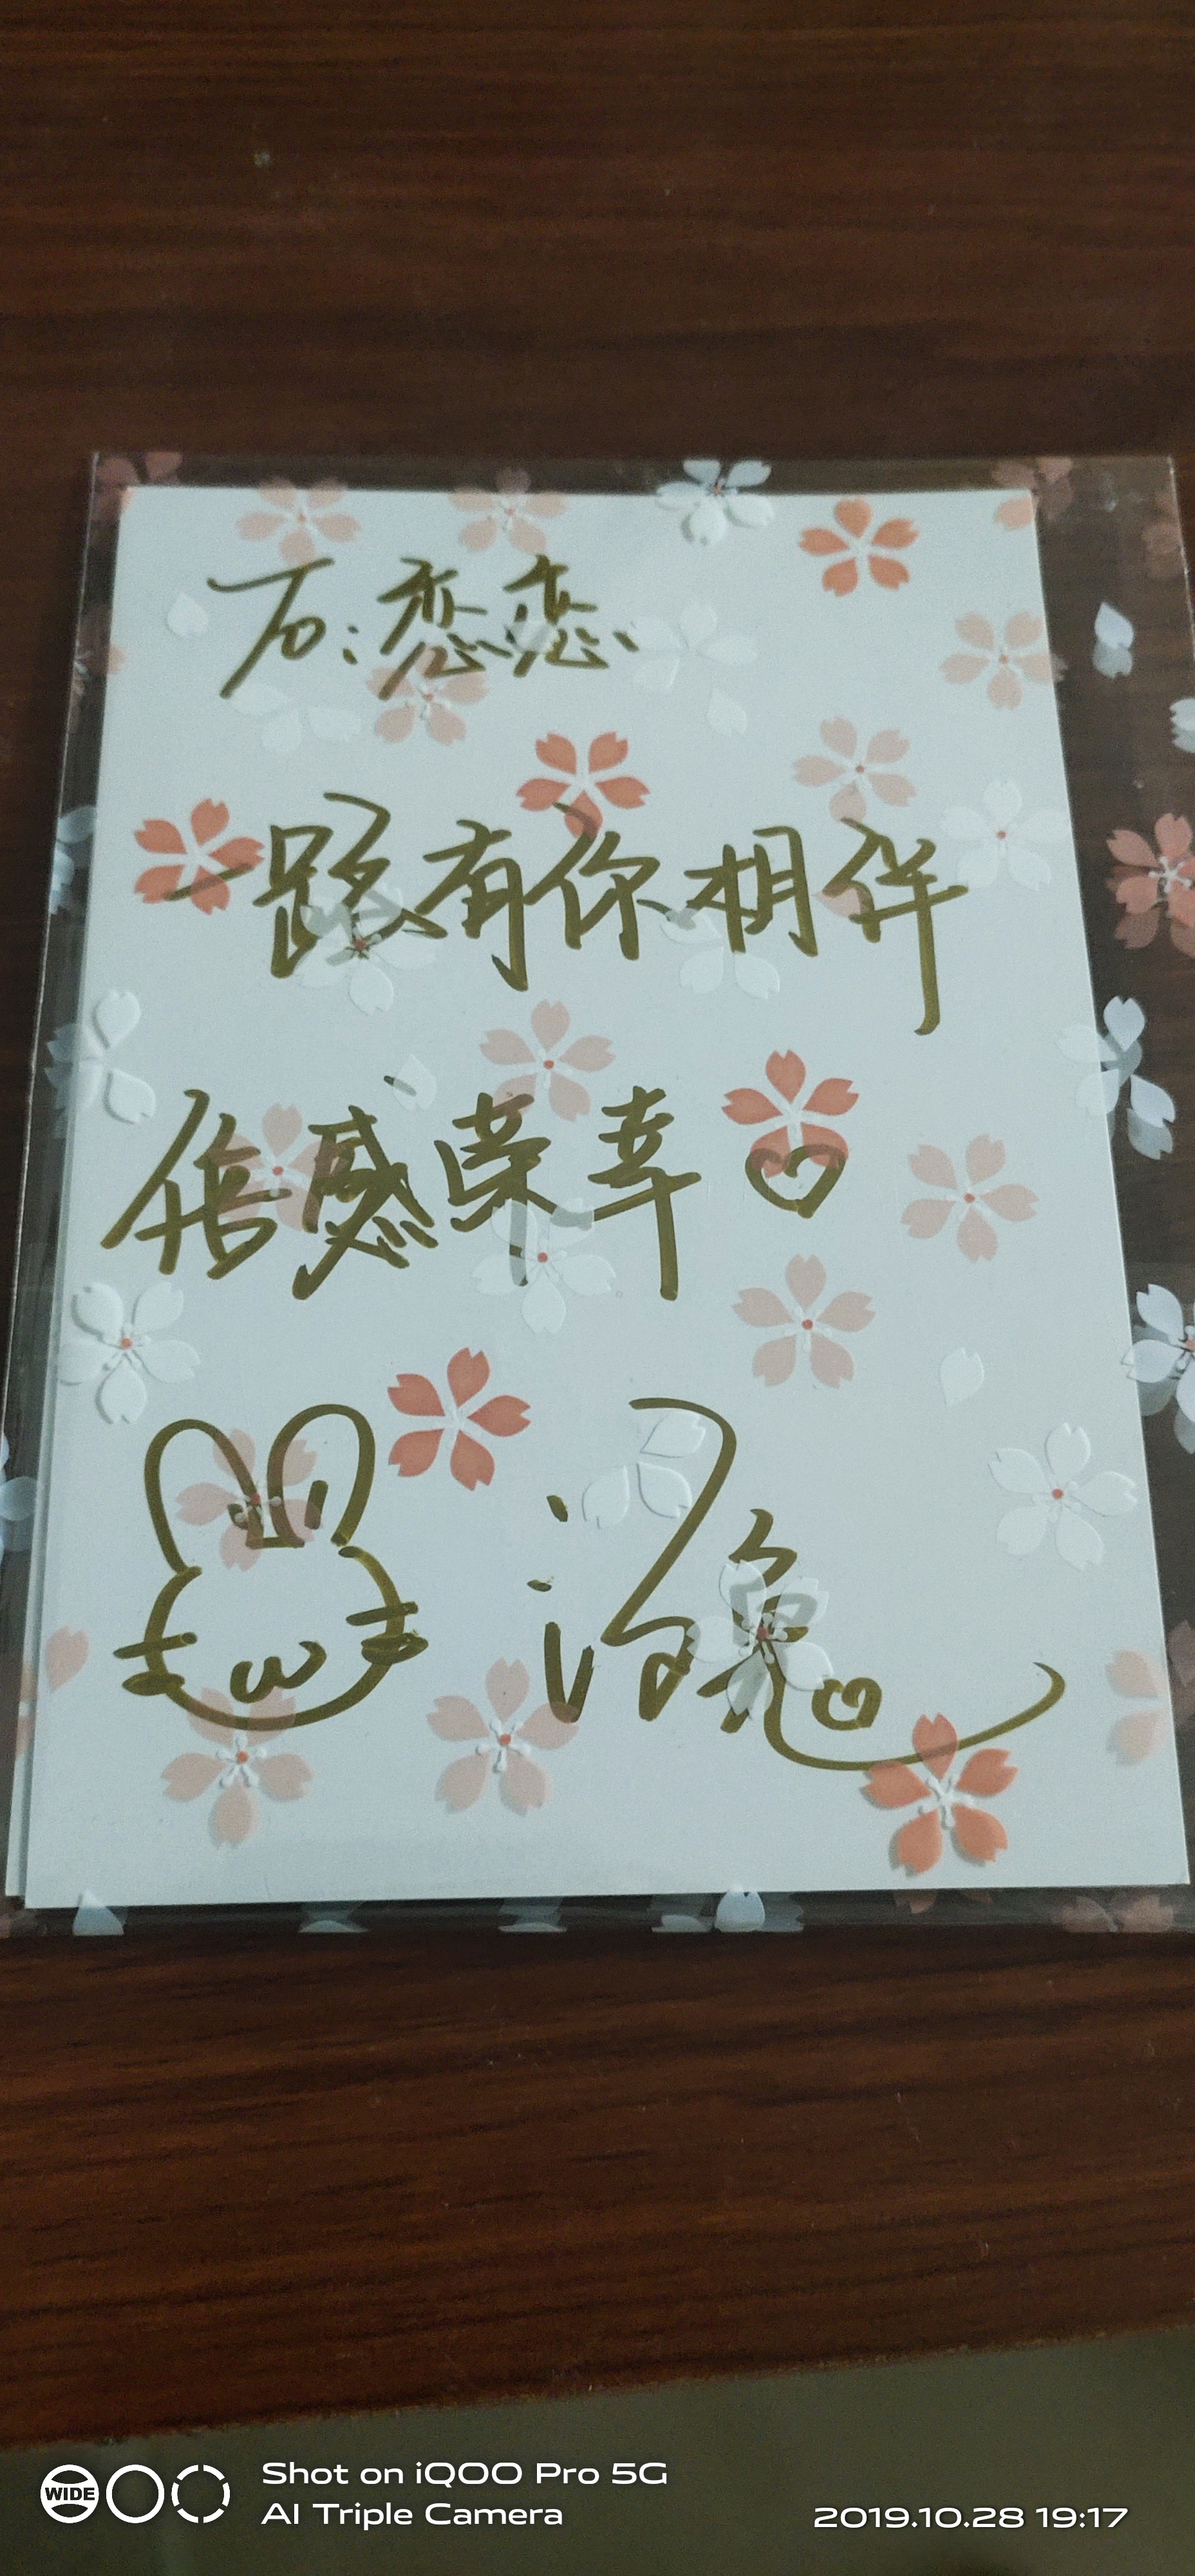 To:恋恋
一路有你相伴
倍感荣幸
兔
WIDE
Shot on iQOO Pro 5G
AI Triple Camera
2019.10.28 19:17